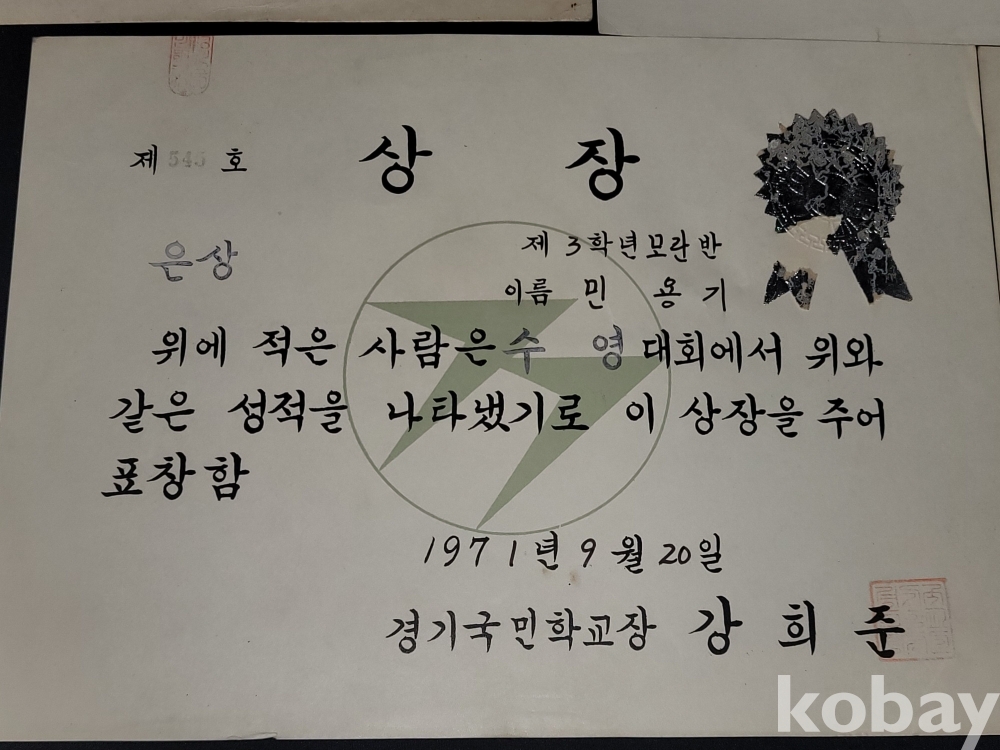 제 545 호
상 장
은상
제 3학년모란반
이름 민 용 기
위에 적은 사람은 수 영 대회에서 위와
같은 성적을 나타냈기로 이 상장을 주어
표창함
1971년 9월 20일
경기국민학교장 강 희 준
kobay